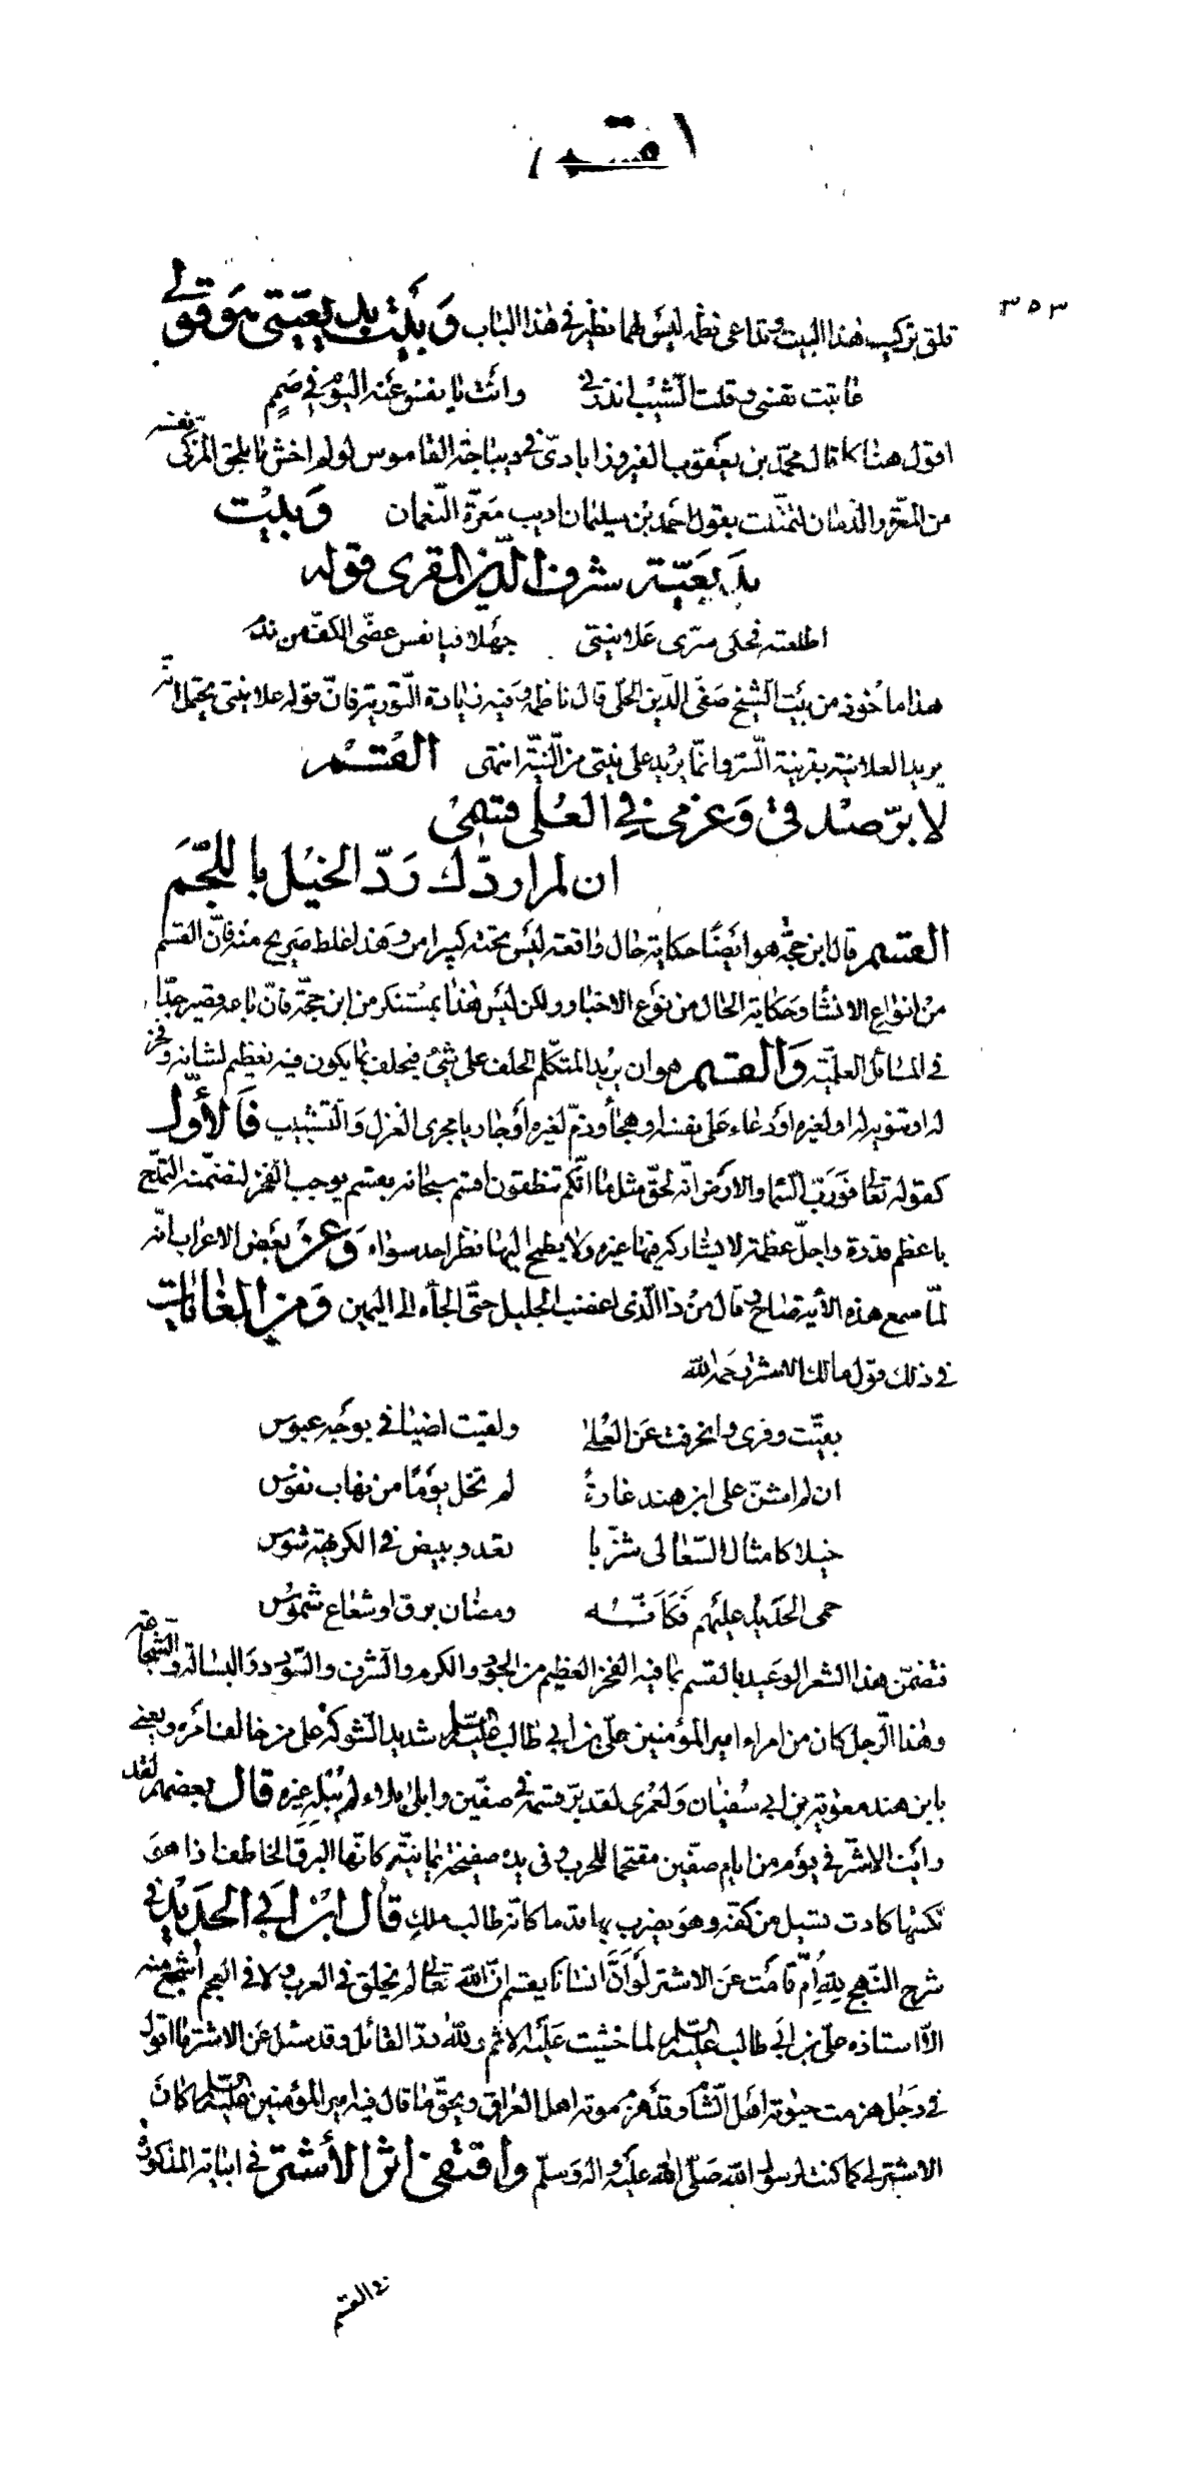 القسم
٣٥٣
قلق تركيب هذا البيت وتداعى نظمه ليس لهما نظير في هذا الباب وبيت بديعيتي هو قولي
عاتبت نفسي وقلت الشيب انذرني وانت يا نفس عنه اليوم في صمم
اقول هنا كما قال محمد بن يعقوب الفيروزابادي في ديباجة القاموس لو لم اخش ما يلحق المزكي نفسه
من المعرة والدمان لتمثلت بقول احمد بن سليمان اديب معرة النعمان وبيت
بديعية شرف الدين المقري قوله
اطلعته في على سري علا نيتي جهلا فيا نفس عضي الكف من ندم
هذا ماخوذ من بيت الشيخ صفي الدين الحلي قال ناظمه وفيه زيادة التورية فان قوله علا نيتي يحتمل انه
يريد العلانية بقرينة السر وانما يريد على نيتي من النية انتهى القسم
لا بر صدقي وعزمي في العلى قسمي
ان لم اردك رد الخيل باللجم
القسم قال ابن حجة هو ايضا حكاية حال واقعة ليس تحته كبير امر وهذا غلط صريح منه فان القسم
من انواع الانشا وحكاية الحال من نوع الاخبار ولكن ليس هذا بمستنكر من ابن حجة فان باعه قصير جدا
في المسائل العلمية والقسم هو ان يريد المتكلم الحلف على شيء فيحلف بما يكون فيه تعظيم لشانه وفخر
له او تنويه له او لغيره او دعاء على نفسه او هجاء وذم لغيره او جاريا مجرى الغزل والتشبيب فالأول
كقوله تعالى فورب السماء والارض انه لحق مثل ما انكم تنطقون اقسم سبحانه بقسم يوجب الفخر لتضمنه التمدح
باعظم قدرة واجل عظمة لا يشاركه فيها غيره ولا يطمح اليها نظر احد سواه وعن بعض الاعراب انه
لما سمع هذه الأية صاح وقال من ذا الذي اغضب الجليل حتى الجأه الى اليمين ومن الغايات
في ذلك قول مالك الاشتر رحمه الله
بقيت وفري وانحرفت عن العلى ولقيت اضيافي بوجه عبوس
ان لم اشن على ابن هند غارة لم تخل يوما من نهاب نفوس
خيلا كامثال السعالى شزبا تعدو ببيض في الكريهة شوس
حمي الحديد عليهم فكأنه ومضان برق او شعاع شموس
فتضمن هذا الشعر الوعيد بالقسم بما فيه الفخر العظيم من الجود والكرم والشرف والسودد والبسالة والشجاعة
وهذا الرجل كان من امراء امير المؤمنين علي بن ابي طالب عليه السلام شديد الشوكة على من خالف امره ويعني
بابن هند معوية بن ابي سفيان ولعمري لقد بر قسمه في صفين وابلى بلاء لم يبله غيره قال بعضهم لقد
رايت الاشتر في يوم من ايام صفين مقتحما للحرب وفي يده صفيحة يمانية كانها البرق الخاطف اذا هو
نكسها كادت تسيل من كفه وهو يضرب بها قدما كانه طالب ملك قال ابن ابي الحديد في
شرح النهج لله أم قامت عن الاشتر لو أن انسانا يقسم ان الله تعالى لم يخلق في العرب ولا في العجم أشجع منه
الا استاذه علي بن ابي طالب عليه السلام لما خشيت عليه الاثم ولله در القائل وقد سئل عن الاشتر ما اقول
في رجل هزمت حيوته اهل الشام وقد هزم موته اهل العراق وبحق ما قال فيه امير المؤمنين عليه السلام كان
الاشتر لي كما كنت لرسول الله صلى الله عليه واله وسلم واقتفى اثر الأشتر في ابياته المذكورة
في القسم